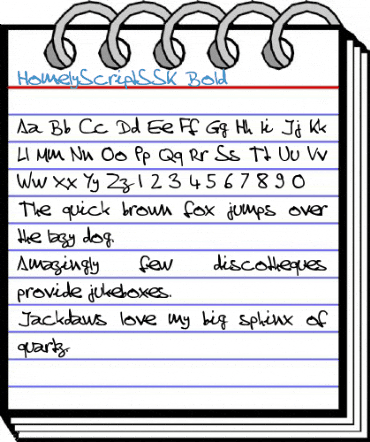 HomelyScriptSSK Bold
Aa Bb Cc Dd Ee Ff Gg Hh Ii Jj Kk
Ll Mm Nn Oo Pp Qq Rr Ss Tt Uu Vv
Ww Xx Yy Zz 1 2 3 4 5 6 7 8 9 0
The quick brown fox jumps over
the lazy dog.
Amazingly few discotheques
provide jukeboxes.
Jackdaws love my big sphinx of
quartz.